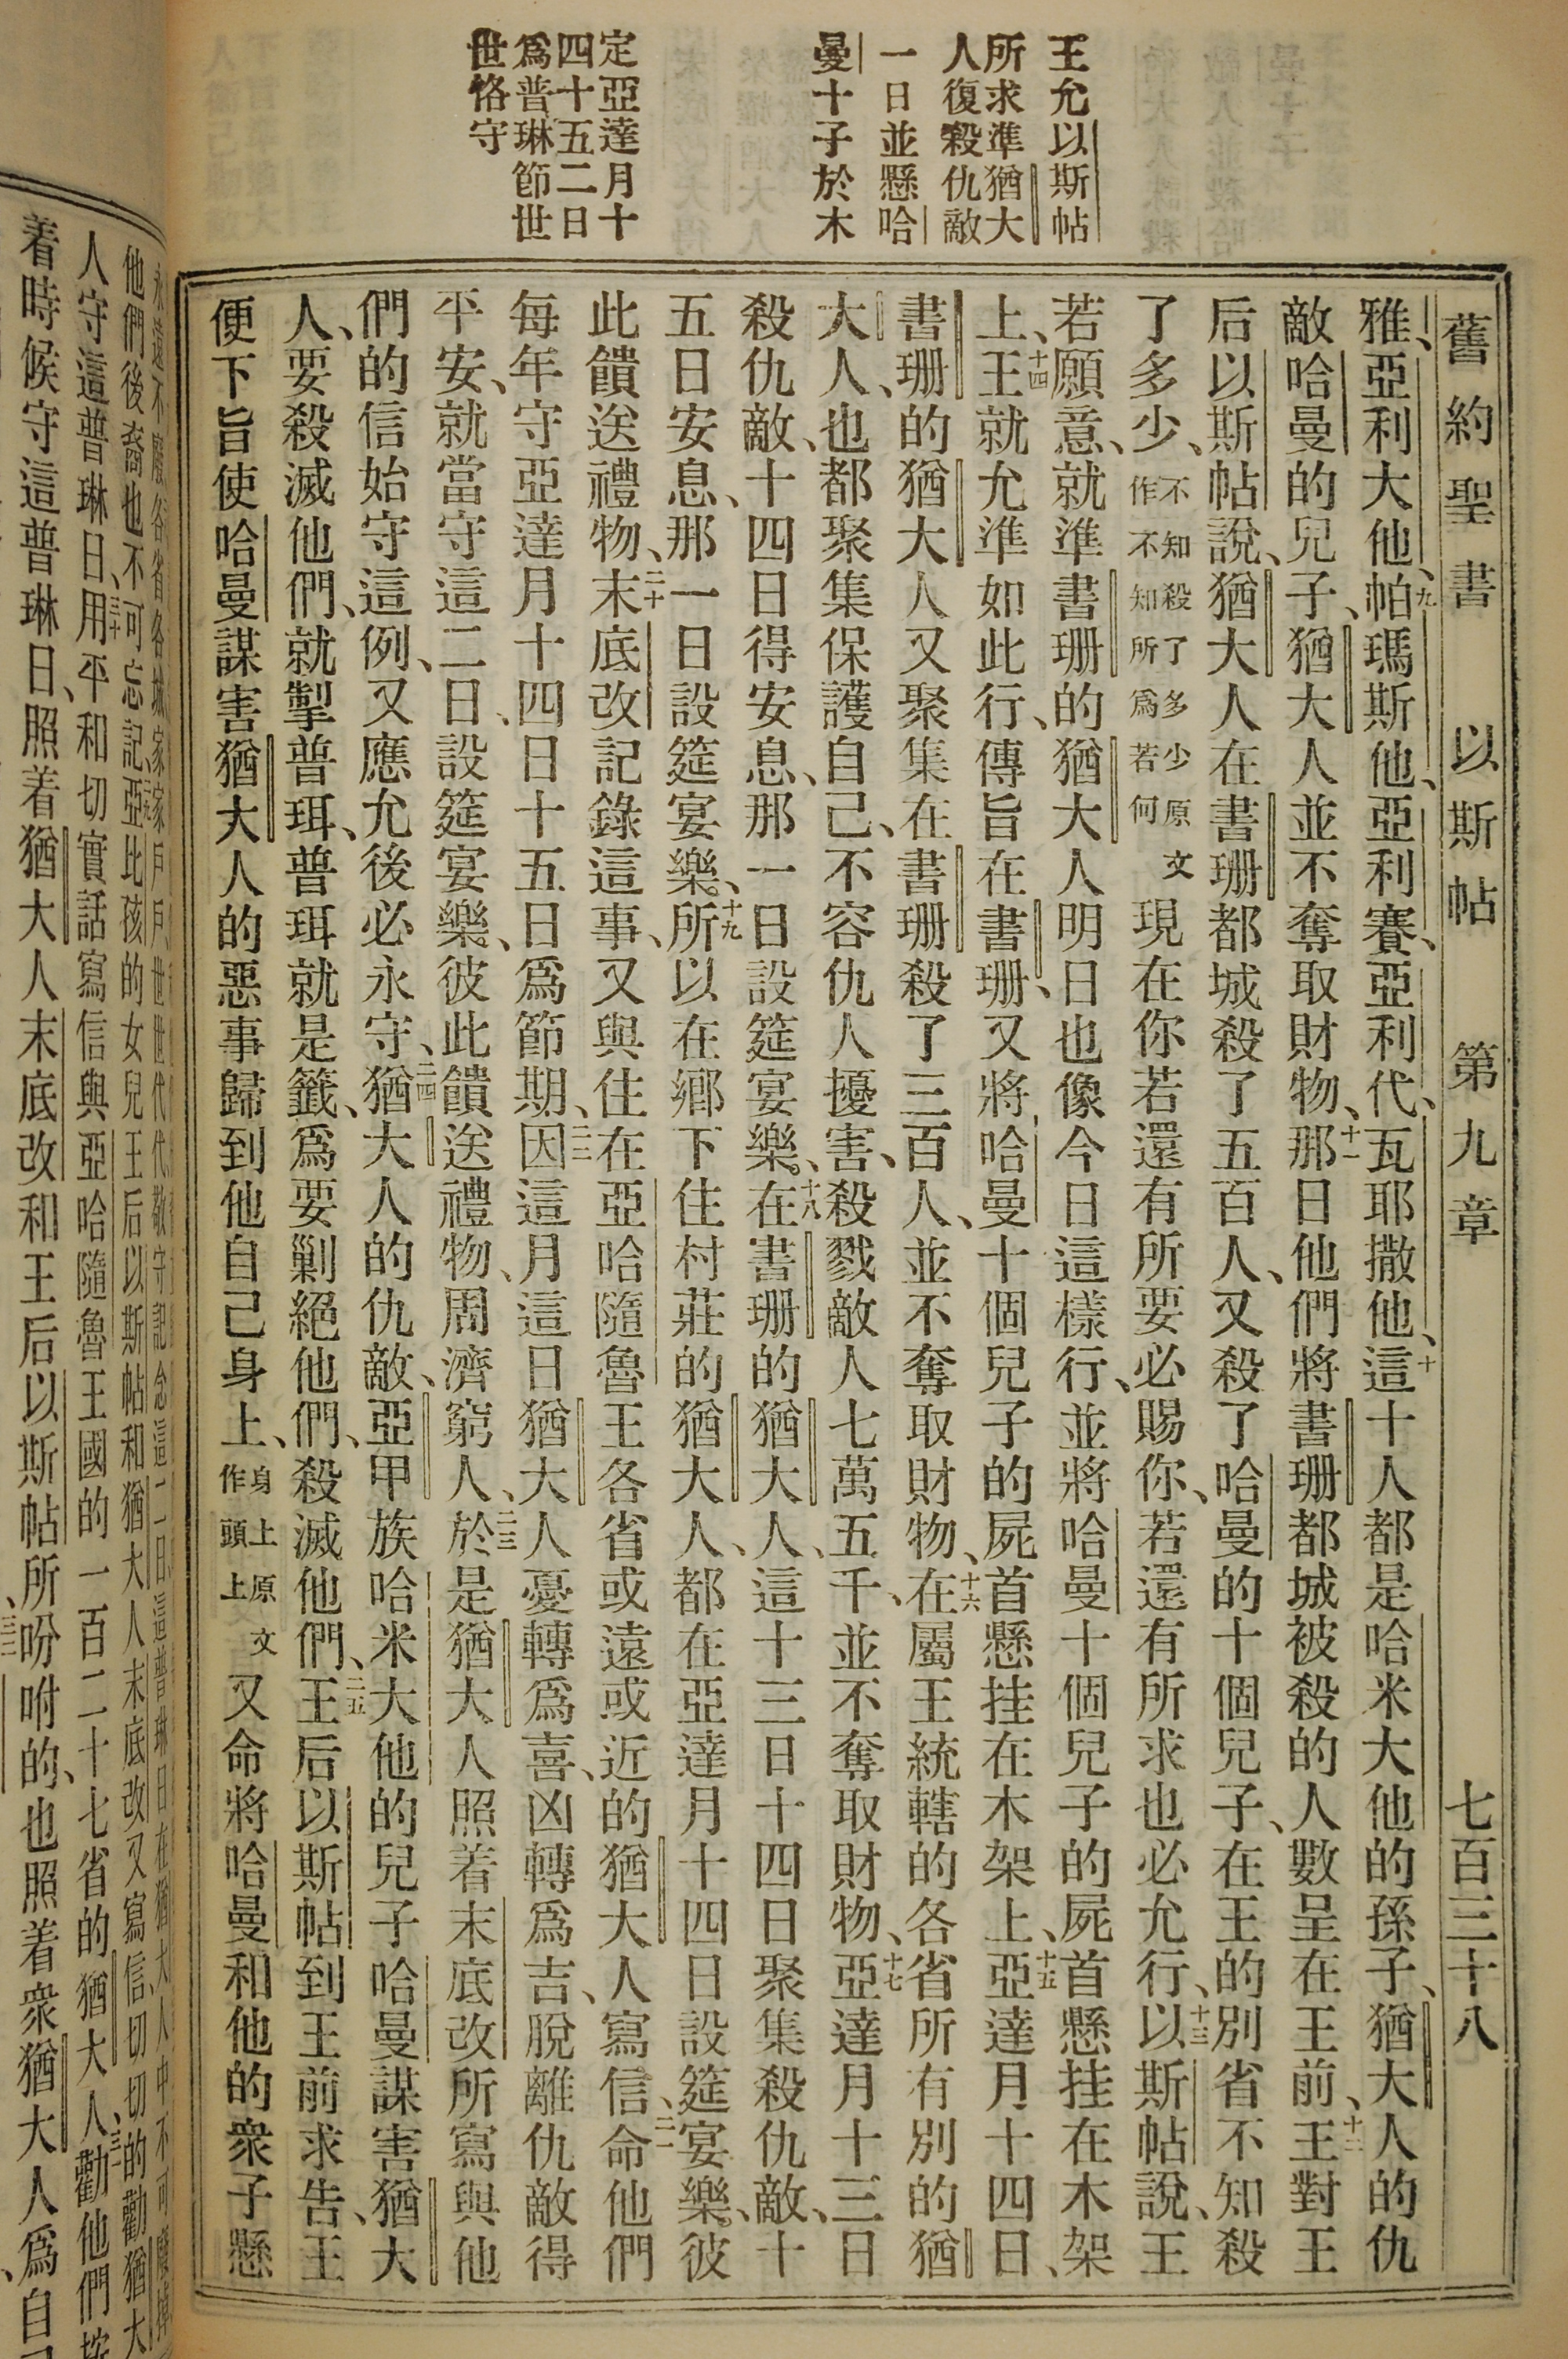 舊約聖書 以斯帖 第九章 七百三十八
王允以斯帖
所求準猶大
人復殺仇敵
一日並懸哈
曼十子於木
定亞達月十
四十五二日
爲普琳節世
世恪守
雅、亞利大他、九帕瑪斯他、亞利賽、亞利代、瓦耶撒他、十這十人都是哈米大他的孫子、猶大人的仇
敵哈曼的兒子、猶大人並不奪取財物、十一那日他們將書珊都城被殺的人數呈在王前、十二王對王
后以斯帖說、猶大人在書珊都城殺了五百人、又殺了哈曼的十個兒子、在王的別省不知殺
了多少、不知殺了多少原文作不知所爲若何現在你若還有所要必賜你、若還有所求也必允行、十三以斯帖說、王
若願意、就準書珊的猶大人明日也像今日這樣行、並將哈曼十個兒子的屍首懸挂在木架
上、十四王就允準如此行、傳旨在書珊、又將哈曼十個兒子的屍首懸挂在木架上、十五亞達月十四日、
書珊的猶大人又聚集在書珊殺了三百人、並不奪取財物、十六在屬王統轄的各省所有別的猶
大人、也都聚集保護自己、不容仇人擾害、殺戮敵人七萬五千、並不奪取財物、十七亞達月十三日
殺仇敵、十四日得安息、那一日設筵宴樂、十八在書珊的猶大人、這十三日十四日聚集殺仇敵、十
五日安息、那一日設筵宴樂、十九所以在鄉下住村莊的猶大人、都在亞達月十四日設筵宴樂、彼
此饋送禮物、二十末底改記錄這事、又與住在亞哈隨魯王各省或遠或近的猶大人寫信、二一命他們
每年守亞達月十四日十五日爲節期、二二因這月這日猶大人憂轉爲喜、凶轉爲吉、脫離仇敵得
平安、就當守這二日、設筵宴樂、彼此饋送禮物、周濟窮人、二三於是猶大人照着末底改所寫與他
們的信始守這例、又應允後必永守、二四猶大人的仇敵、亞甲族哈米大他的兒子哈曼謀害猶大
人、要殺滅他們、就掣普珥、普珥就是籤、爲要剿絕他們、殺滅他們、二五王后以斯帖到王前求告、王
便下旨使哈曼謀害猶大人的惡事歸到他自己身上、身上原文作頭上又命將哈曼和他的衆子懸
他們後裔也不可忘記、亞比孩的女兒王后以斯帖和猶大人末底改又寫信、切切的勸猶大
人守這普琳日、三十用平和切實話寫信與亞哈隨魯王國的一百二十七省的猶大人、三一勸他們按
着時候守這普琳日、照着猶大人末底改和王后以斯帖所吩咐的、也照着衆猶大人爲自